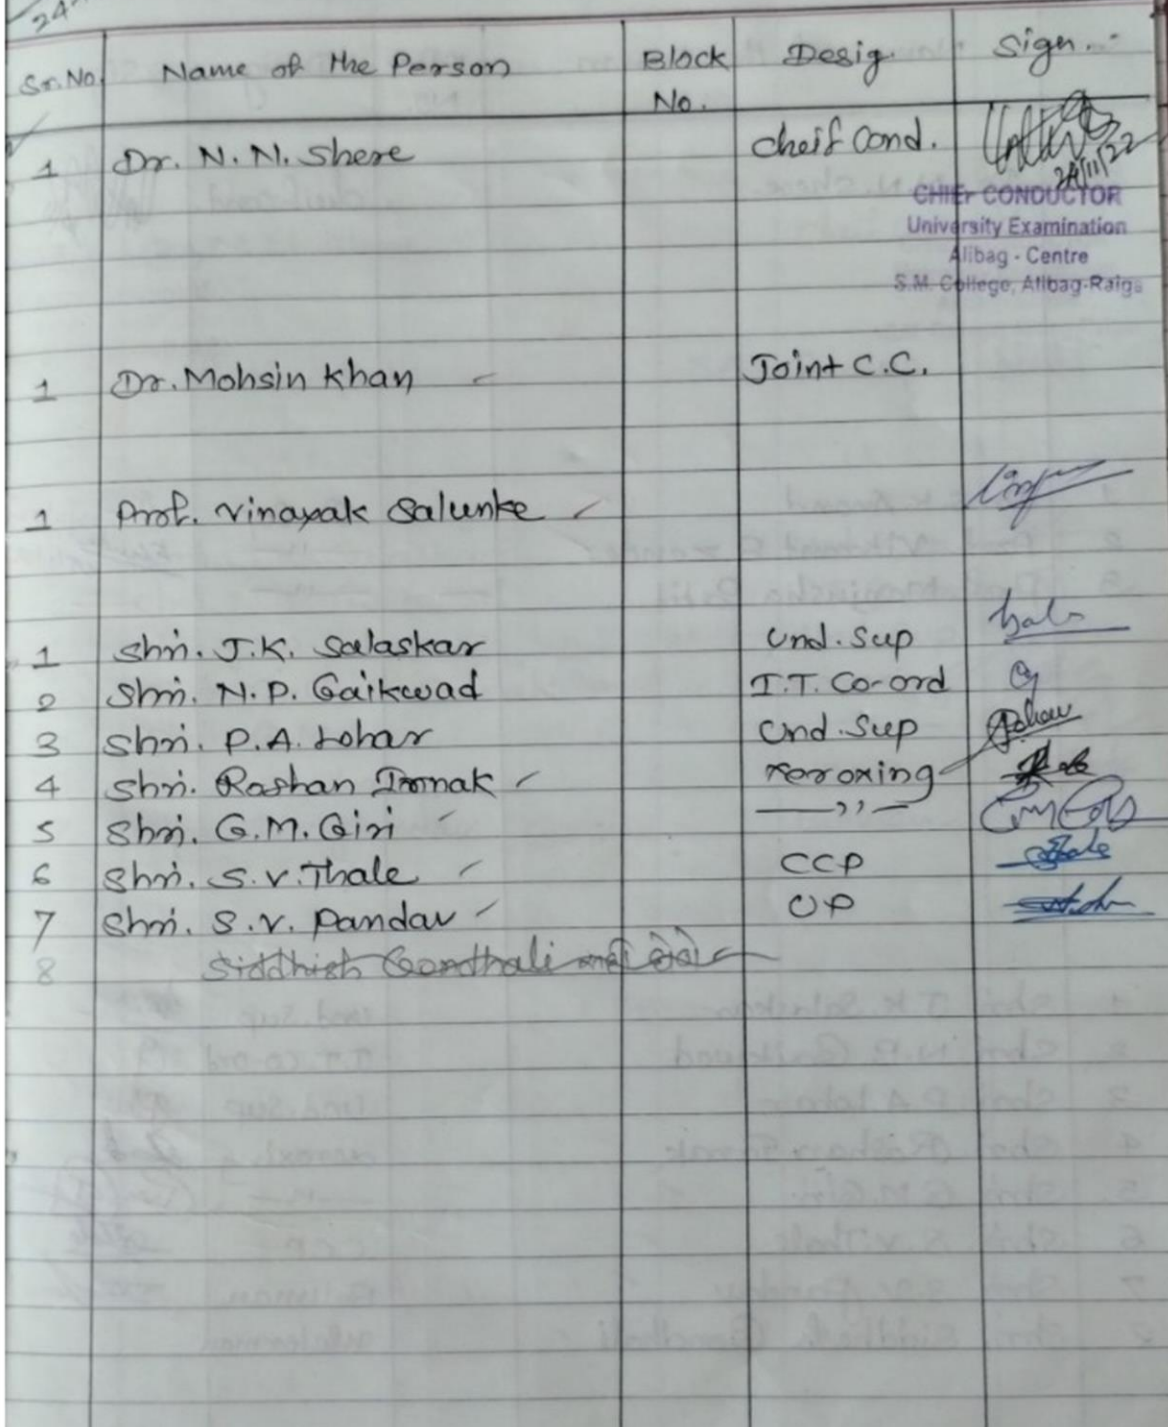 24
Sr.No. Name of the Person Block No. Desig. Sign.
1 Dr. N. N. Shere Cheif Cond.
24/11/22
CHIEF CONDUCTOR
University Examination
Alibag - Centre
S.M. College, Alibag-Raiga
1 Dr. Mohsin Khan Joint C.C.
1 Prof. Vinayak Salunke
1 Shri. J.K. Salaskar Und. Sup
2 Shri. N. P. Gaikwad I.T. Co-ord
3 Shri. P.A. Lohar Und. Sup
4 Shri. Rashan Immak Xeroxing
5 Shri. G.M. Giri —,,—
6 Shri. S.V. Thale CCP
7 Shri. S.V. Pandav OP
8 Siddhish Gondhali